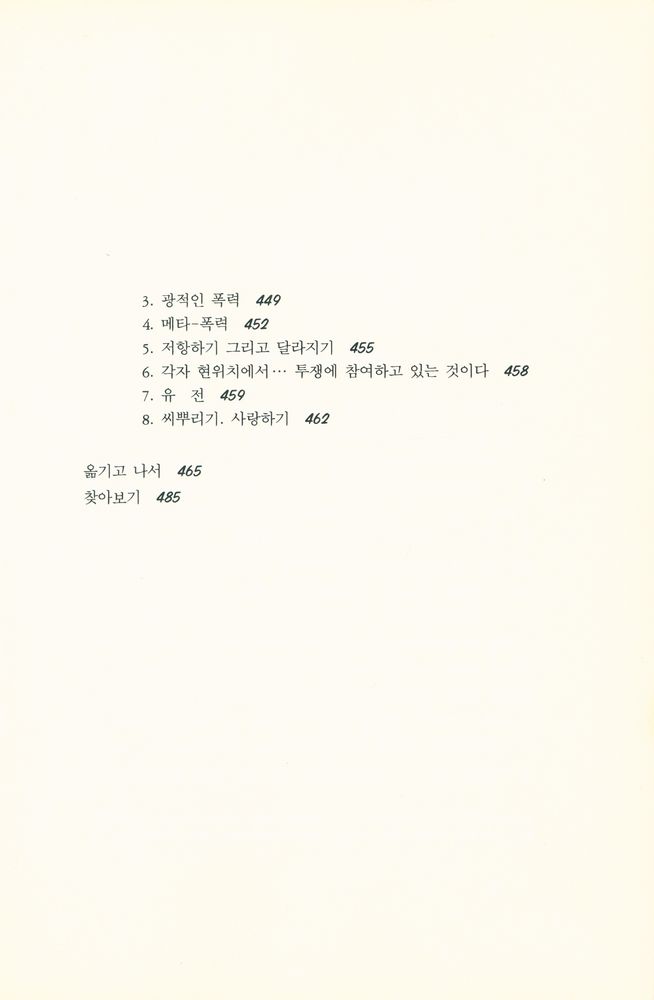 3. 광적인 폭력 449
4. 메타-폭력 452
5. 저항하기 그리고 달라지기 455
6. 각자 현위치에서… 투쟁에 참여하고 있는 것이다 458
7. 유 전 459
8. 씨뿌리기. 사랑하기 462
옮기고 나서 465
찾아보기 485